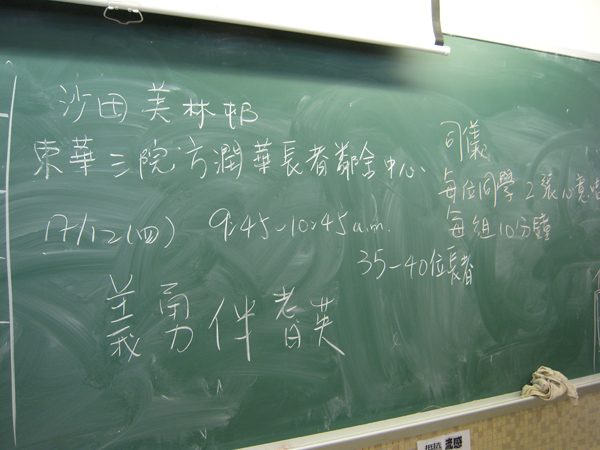 沙田美林邨
東華三院方潤華長者鄰舍中心
17/12(四) 9:45-10:45 a.m.
35-40位長者
義勇伴耆英
司儀
每位同學2張心意
每組10分鐘
流感